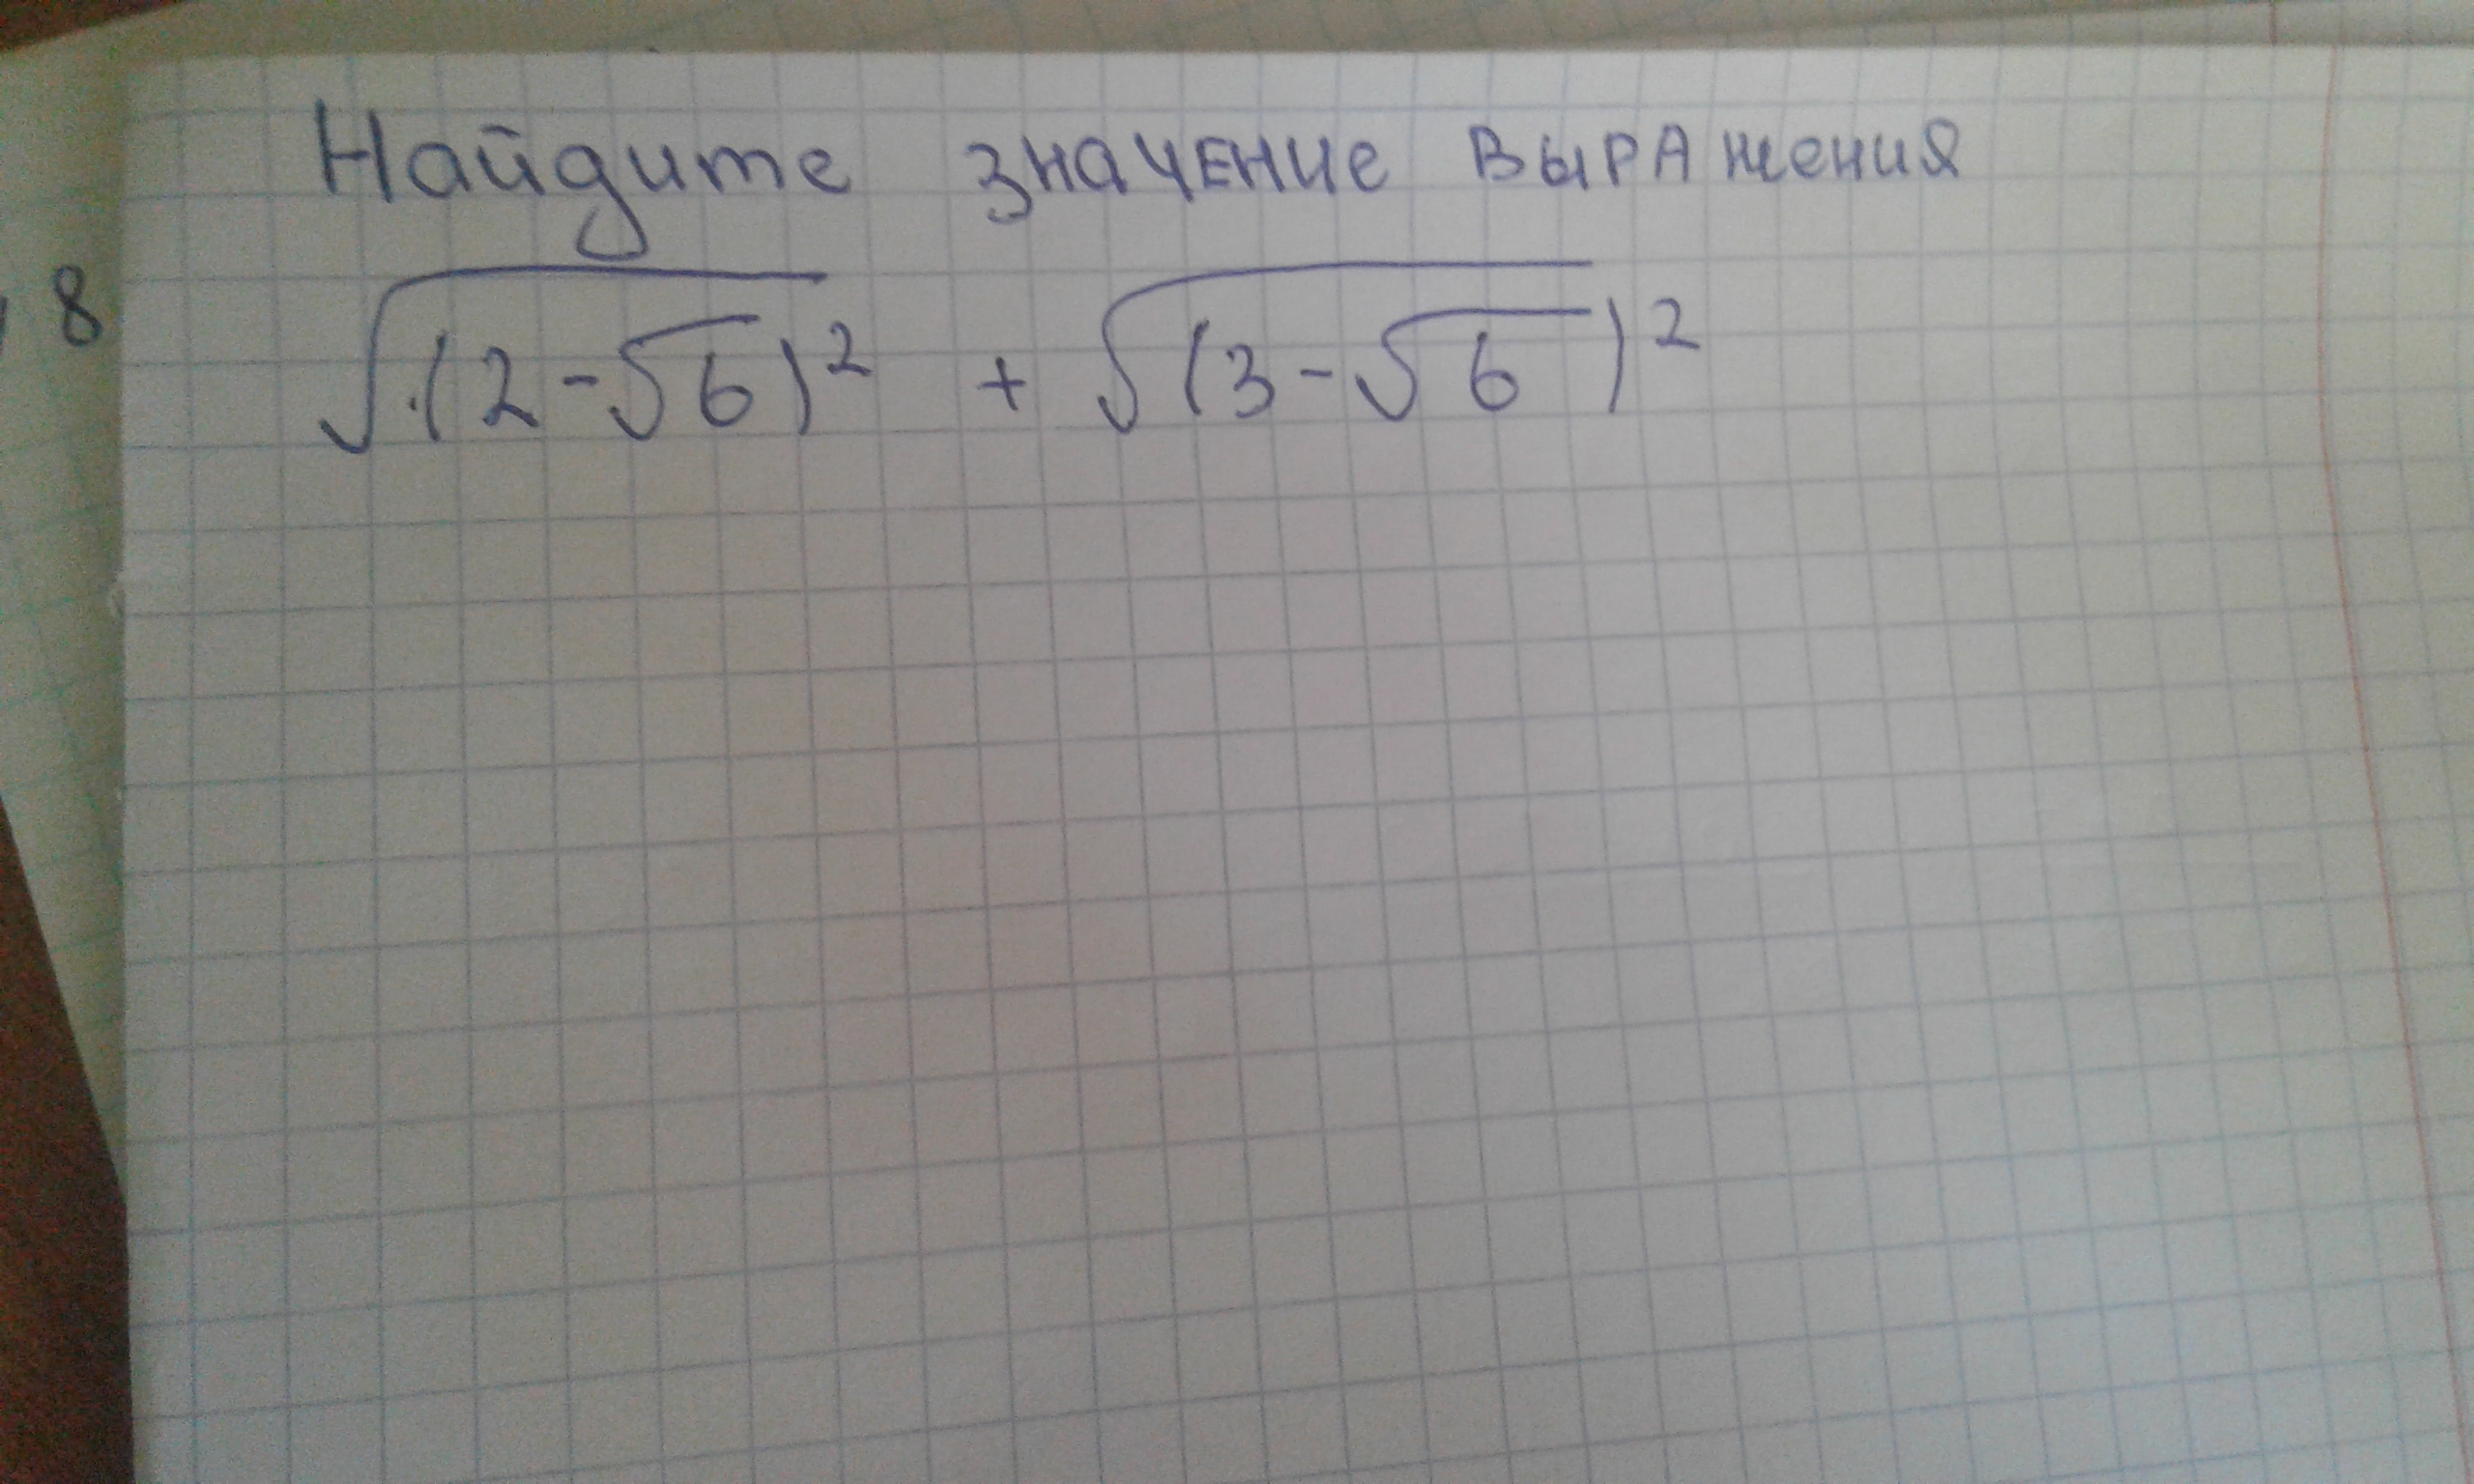 Найдите значение выражения
8
√(2-√6)² + √(3-√6)²